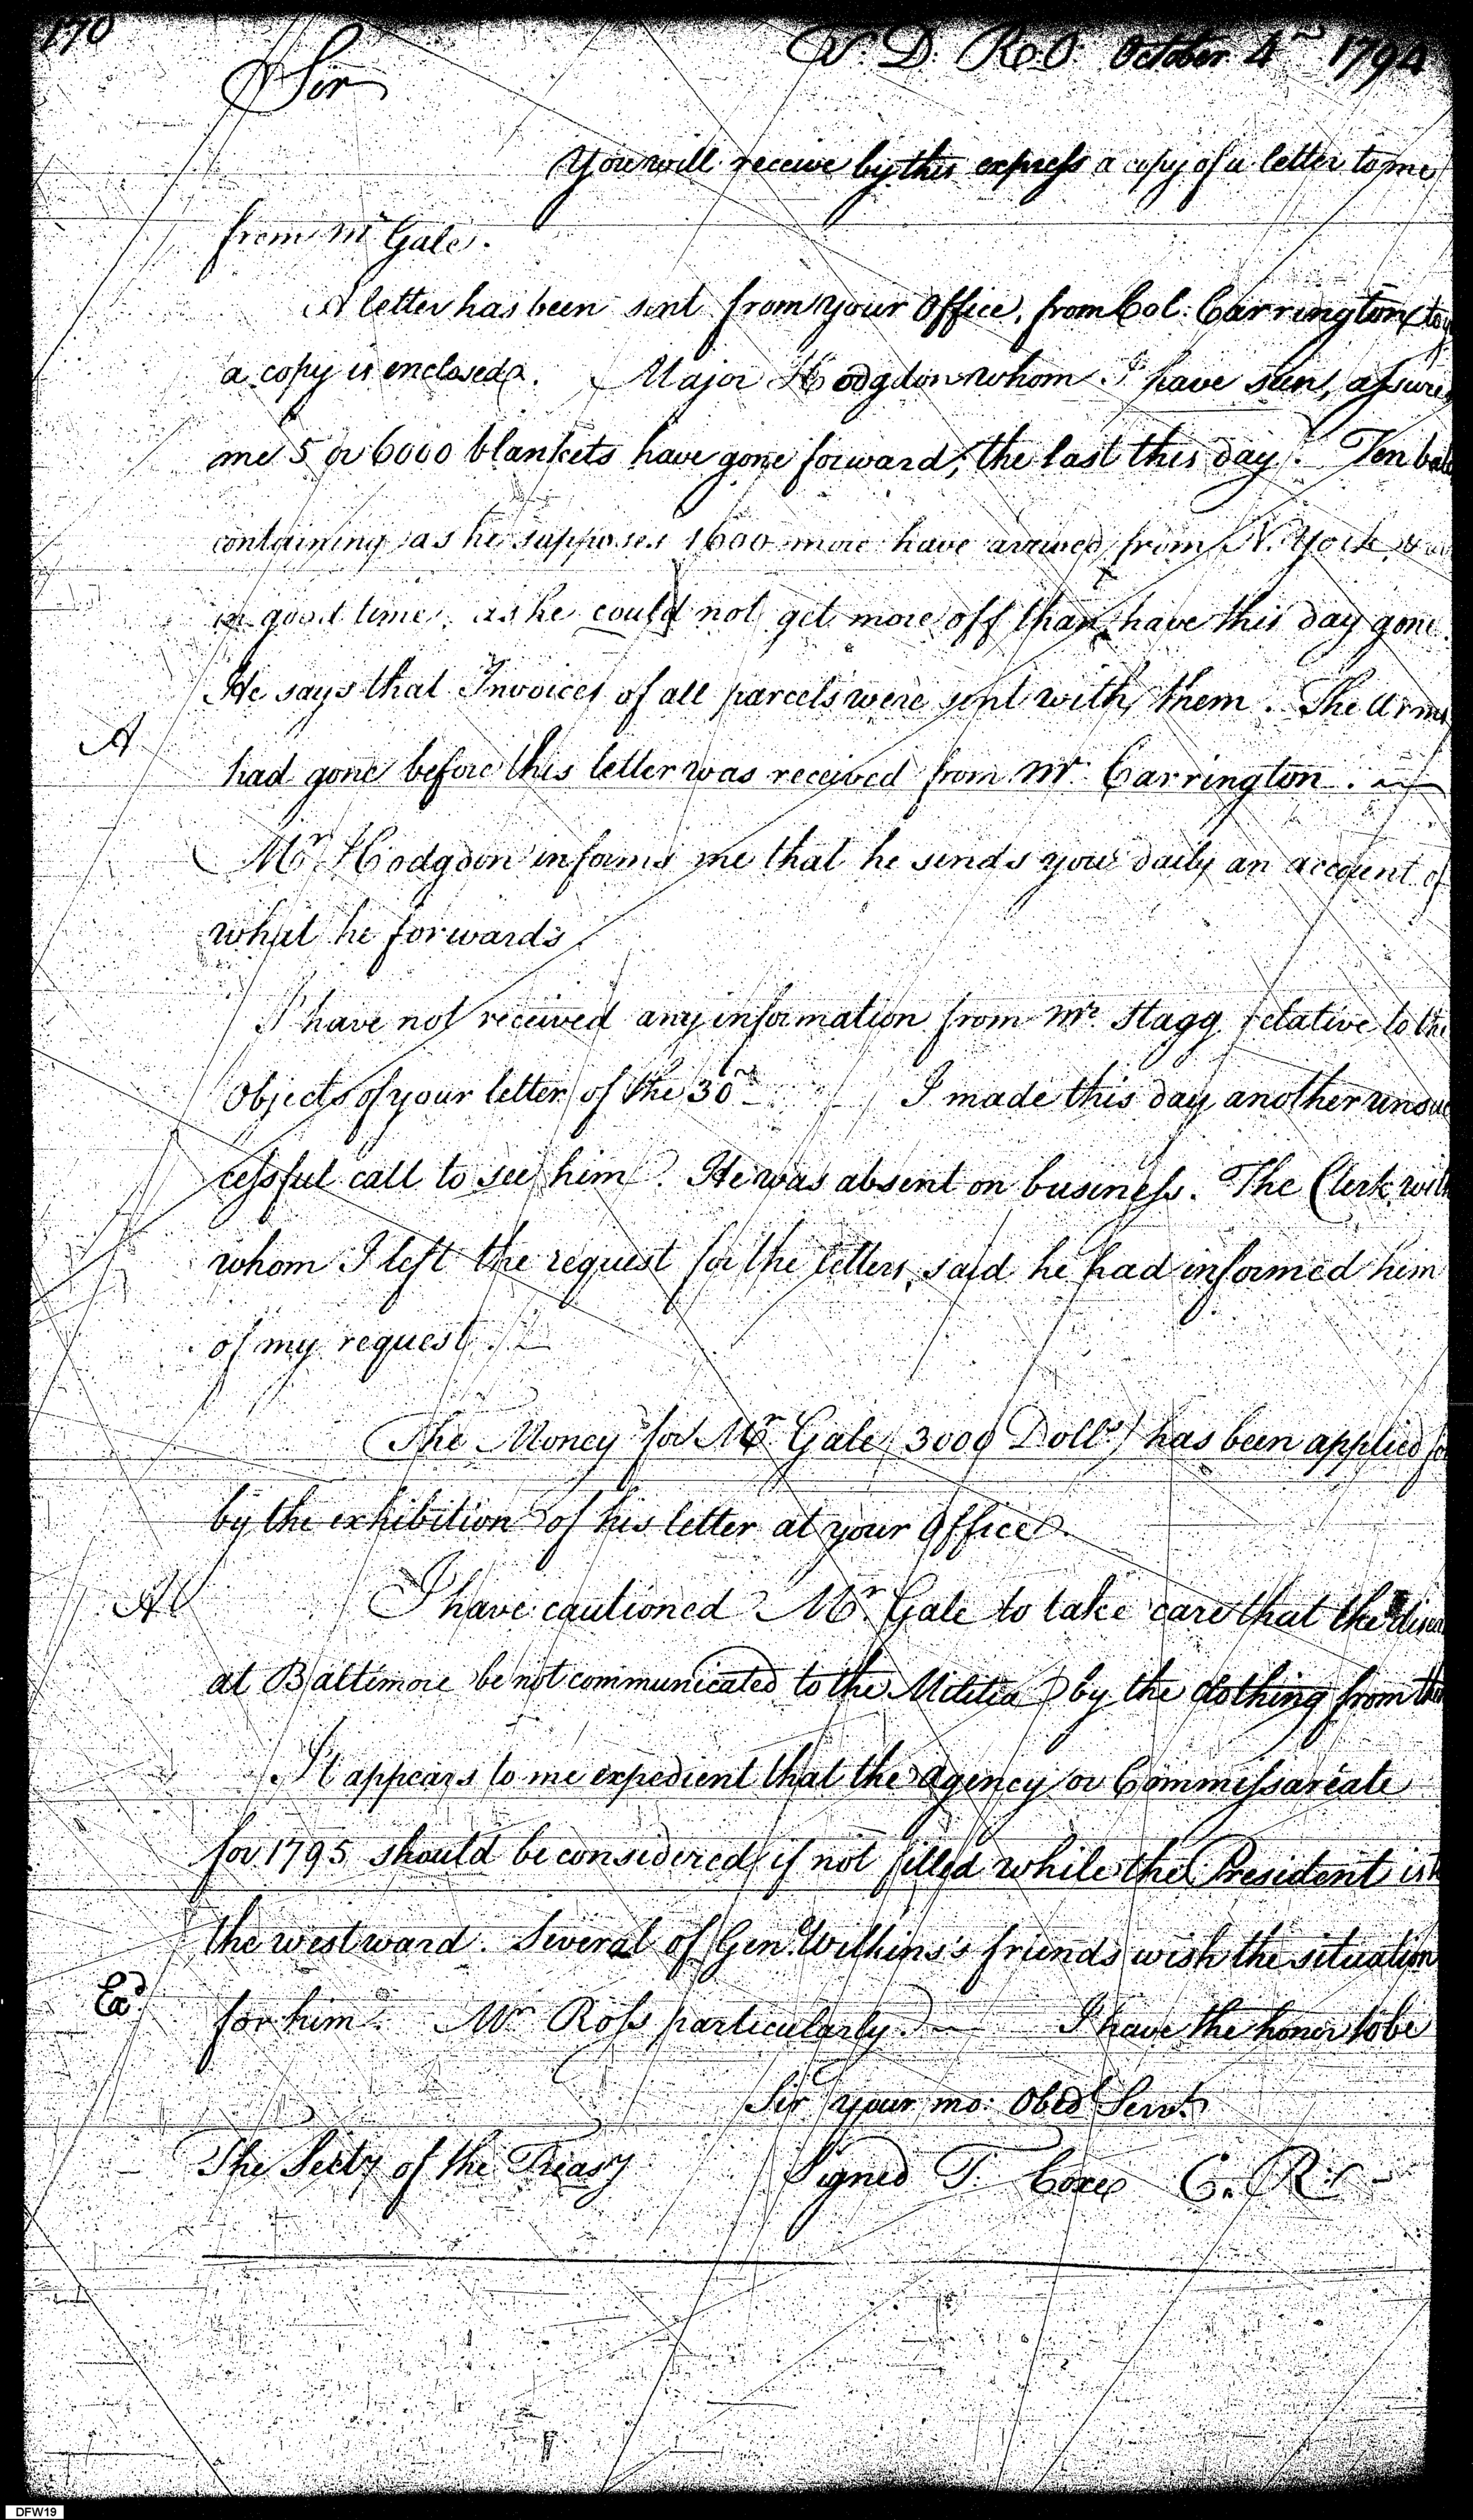 170
T. D. R.O. October 4th 1794
Sir
You will receive by this express a copy of a letter to me
from Mr Gale.
A letter has been sent from your Office, from Col. Carrington
a copy is enclosed. Major Hodgdon whom I have seen, assures
me 5 or 6000 blankets have gone forward, the last this day. Ten bales
containing as he supposes 1600 more have arrived from N. York, &
in good time, as he could not get more off than have this day gone.
He says that Invoices of all parcels were sent with them. The Arms
A
had gone before this letter was received from Mr. Carrington.
Mr. Hodgdon informs me that he sends you daily an account of
what he forwards.
I have not received any information from Mr. Stagg relative to the
Objects of your letter of the 30th I made this day another unsuc
cessful call to see him. He was absent on business. The Clerk with
whom I left the request for the letters, said he had informed him
of my request.
The Money for Mr. Gale (3000 Dolls) has been applied for
by the exhibition of his letter at your Office.
A
I have cautioned Mr. Gale to take care that the
at Baltimore be not communicated to the Militia by the clothing from
It appears to me expedient that the agency or Commissareate
for 1795 should be considered if not filled while the President is
the westward. Several of Genl. Wilkins's friends wish the situation
Ead
for him. Mr Ross particularly. I have the honor to be
Sir your mo: Obedt Servt
The Secty of the Treasy Signed T. Coxe C. R.
DFW19